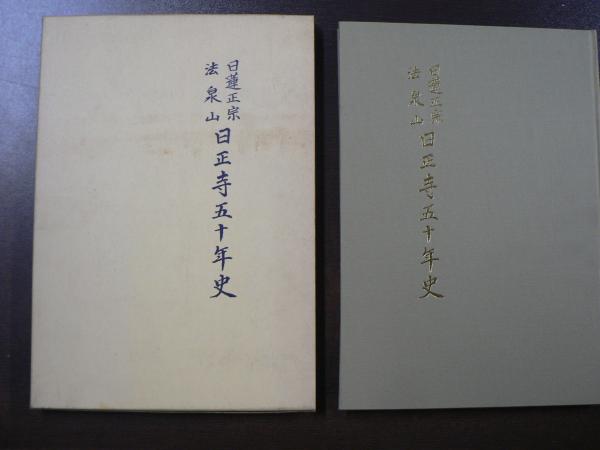 日蓮正宗
法泉山
日正寺五十年史
日蓮正宗
法泉山
日正寺五十年史